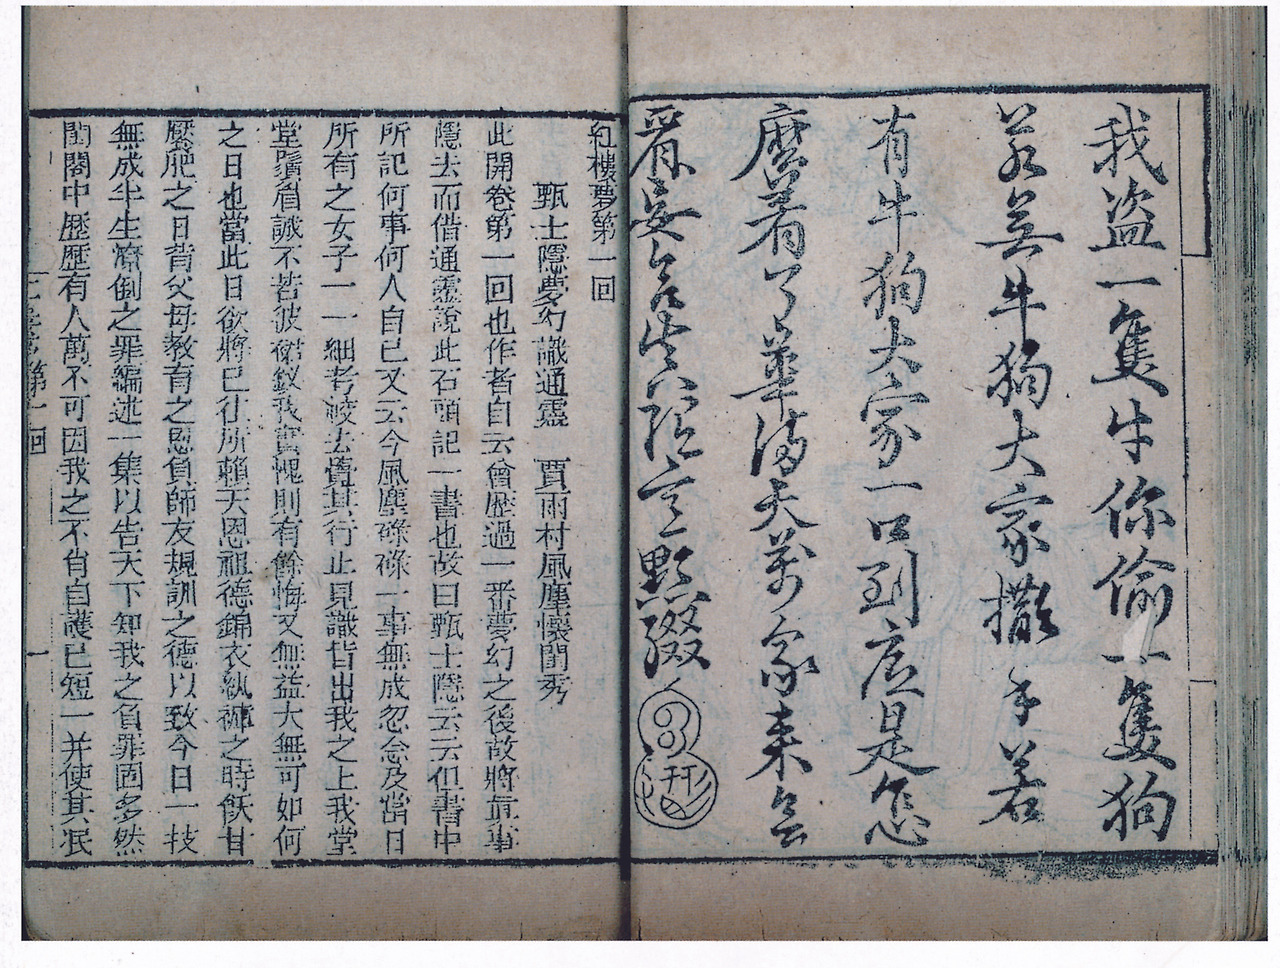 我盜一隻牛你偷一隻狗
若無牛狗大家撒手若
有牛狗大家一口到底是怎
麽着了華滿天萬象来
看妄言
紅樓夢第一回
甄士隱夢幻識通靈　賈雨村風塵懷閨秀
此開卷第一回也作者自云曾歷過一番夢幻之後故將眞事
隱去而借通靈說此石頭記一書也故曰甄士隱云云但書中
所記何事何人自己又云今風塵碌碌一事無成忽念及當日
所有之女子一一細考較去覺其行止見識皆出我之上我堂
堂鬚眉誠不若彼裙釵我實愧則有餘悔又無益大無可如何
之日也當此日欲將已往所賴天恩祖德錦衣紈褲之時飫甘
饜肥之日背父母教育之恩負師友規訓之德以致今日一技
無成半生潦倒之罪編述一集以告天下知我之負罪固多然
閨閣中歷歷有人萬不可因我之不肖自護己短一并使其泯
第一回